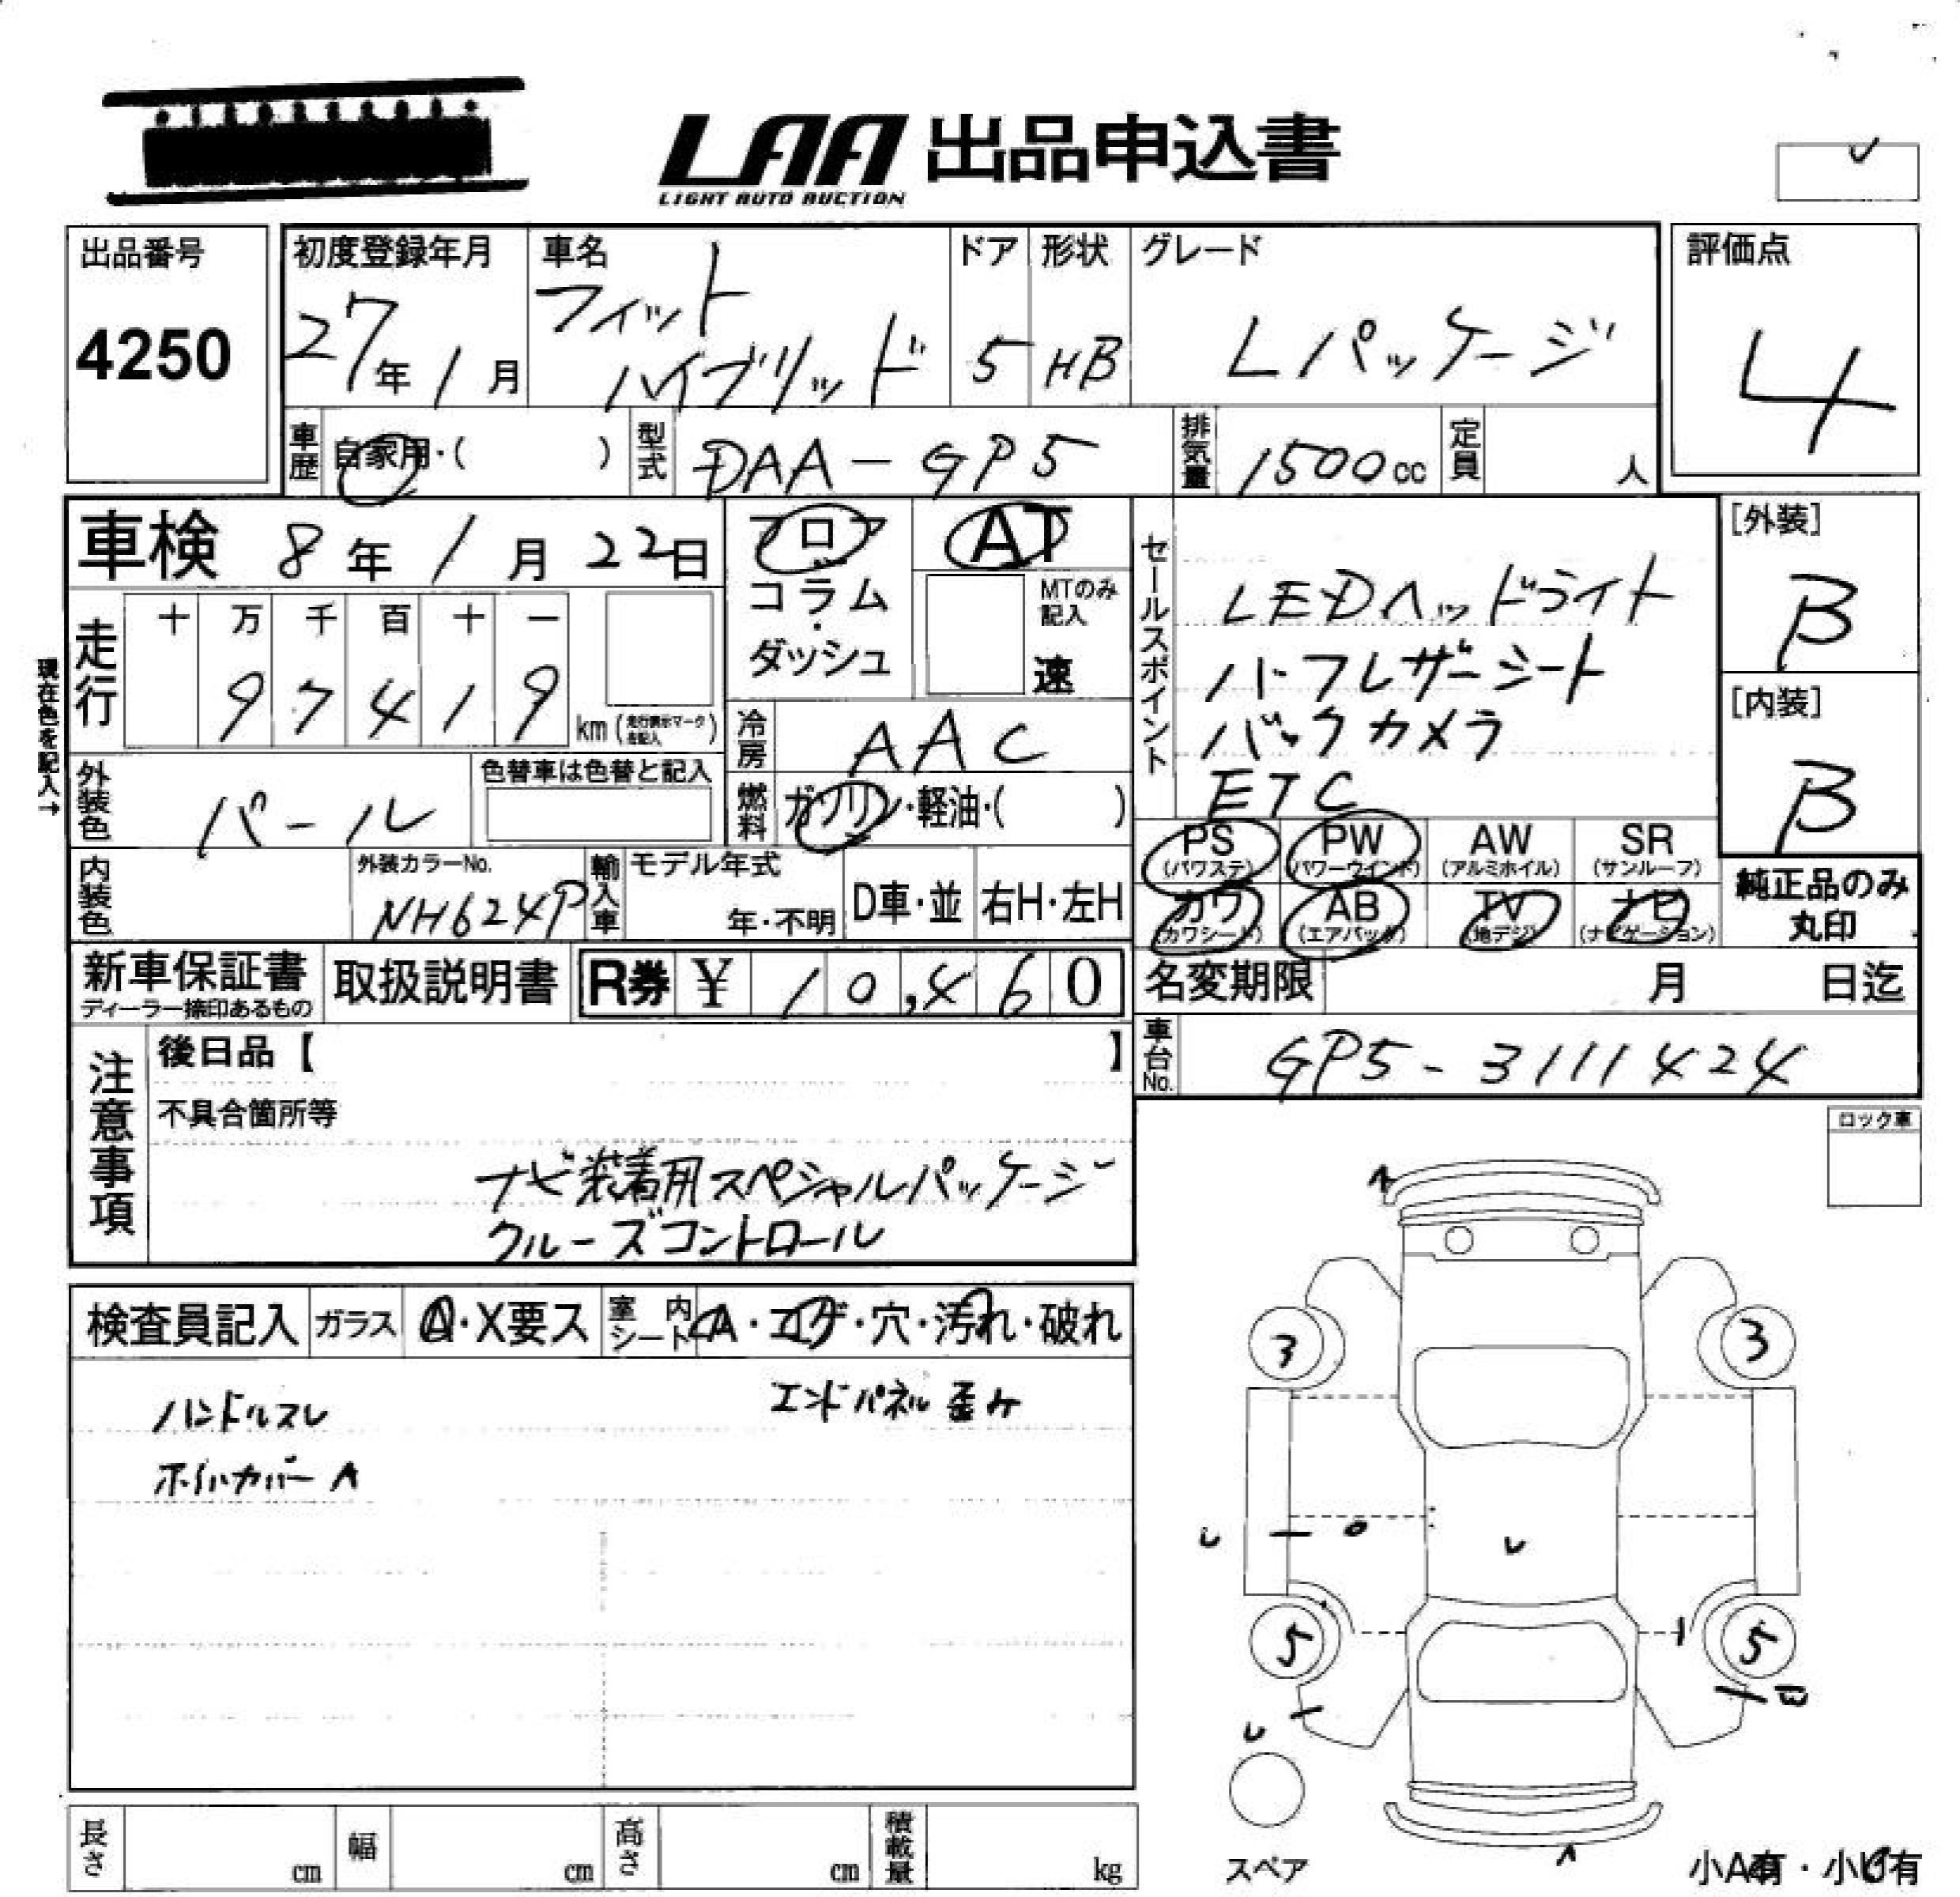 LAA 出品申込書
LIGHT AUTO AUCTION
出品番号
4250
初度登録年月
27年 1月
車名
フィット
ハイブリッド
ドア
5
形状
HB
グレード
Lパッケージ
評価点
4
車歴 自家用・( )
型式 DAA-GP5
排気量 1500cc
定員 人
車検 8年 1月 22日
フロア
コラム
・
ダッシュ
AT
MTのみ
記入
速
セールスポイント
LEDヘッドライト
ハーフレザーシート
バックカメラ
ETC
[外装]
B
[内装]
B
現在色を記入→
走行
十 万 千 百 十 一
9 7 4 1 9
km (走行表示マーク
左記入)
冷房 AAC
燃料 ガソリン・軽油・( )
外装色 パール
色替車は色替と記入
PS
(パワステ)
PW
(パワーウインド)
AW
(アルミホイル)
SR
(サンルーフ)
カワ
(カワシート)
AB
(エアバック)
TV
(地デジ)
ナビ
(ナビゲーション)
純正品のみ
丸印
内装色
外装カラーNo.
NH624P
輸入車
モデル年式
年・不明
D車・並
右H・左H
新車保証書
ディーラー捺印あるもの
取扱説明書
R券 ¥ 10,460
名変期限 月 日迄
車台No. GP5-3111424
注意事項
後日品【 】
不具合箇所等
ナビ装着用スペシャルパッケージ
クルーズコントロール
ロック車
検査員記入
ガラス
A・X要ス
室内
シート
A・コゲ・穴・汚れ・破れ
ハンドルスレ
エンドパネル歪み
ホイルカバーA
A
3 3
U
U
5 5
U
B
スペア
A
小A有・小U有
長さ cm
幅 cm
高さ cm
積載量 kg